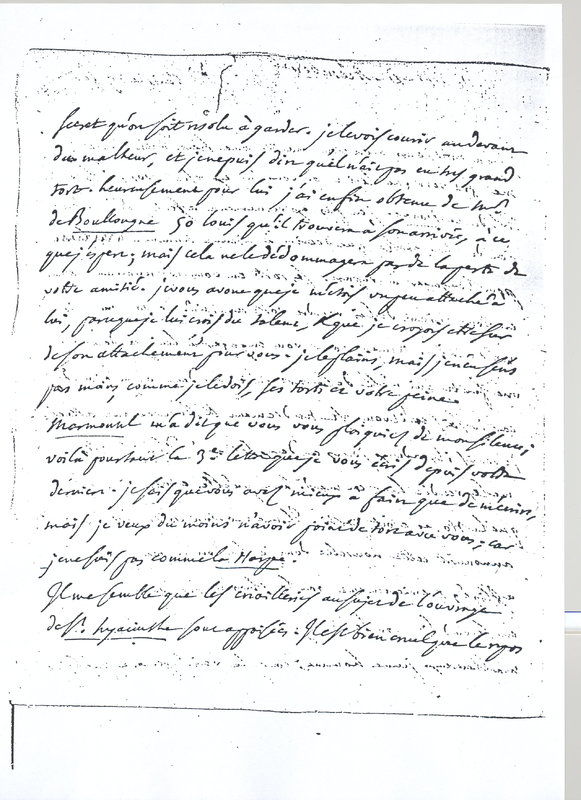 secret qu'on soit résolu à garder. je le vois courir au devant
du malheur, et je ne puis dire qu'il n'ait pas eu très grand
tort. heureusement pour lui j'ai enfin obtenu de Mr
de Boullongne 50 louis qu'il trouvera à son arrivée, à ce
que j'espère; mais cela ne le dédommagera pas de la perte de
votre amitié. je vous avoue que je m'étois un peu attaché à
lui, parce que je lui crois du talent, & que je croyois être sur
de son attachement pour vous. je le plains, mais je n'en sens
pas moins, comme je le dois, ses torts et votre peine.
Marmontel m'a dit que vous vous plaignies de mon silence;
voilà pourtant la 3e. lettre que je vous écris depuis votre
dernière. je sais que vous avés mieux à faire que de m'écrire,
mais je veux du moins n'avoir point de tort avec vous; car
je ne suis pas comme la Harpe.
Il me semble que les criailleries au sujet de l'ouvrage
de St. hyacinthe sont appaisées. Il est bien cruel que le repos